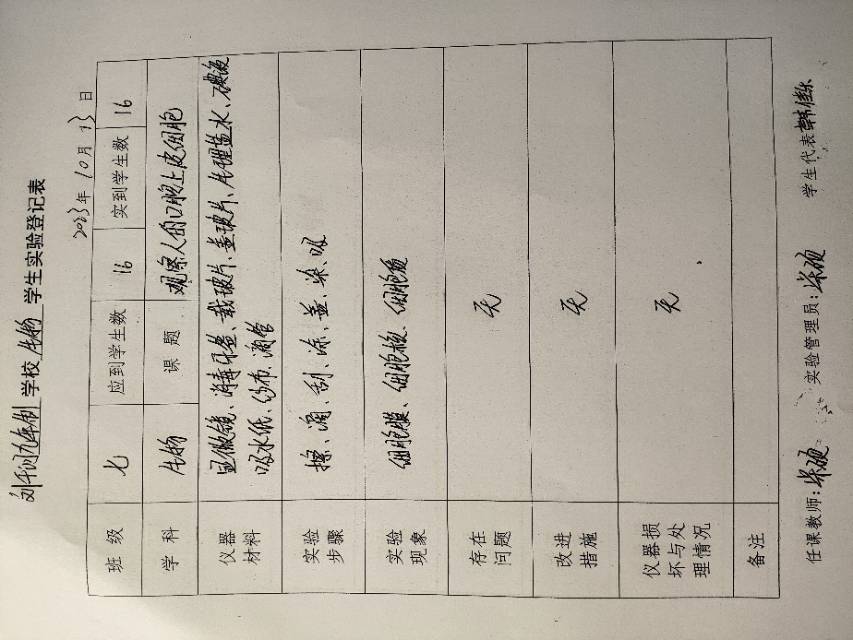 刘千户九年制学校 生物 学生实验登记表
2023年10月13日
班级 七 应到学生数 16 实到学生数 16
学科 生物 课题 观察人的口腔上皮细胞
仪器材料 显微镜、消毒牙签、载玻片、盖玻片、生理盐水、碘液
吸水纸、纱布、滴管
实验步骤 擦、滴、刮、涂、盖、染、吸
实验现象 细胞膜、细胞核、细胞质
存在问题 无
改进措施 无
仪器损坏与处理情况 无
备注
任课教师: 实验管理员: 学生代表